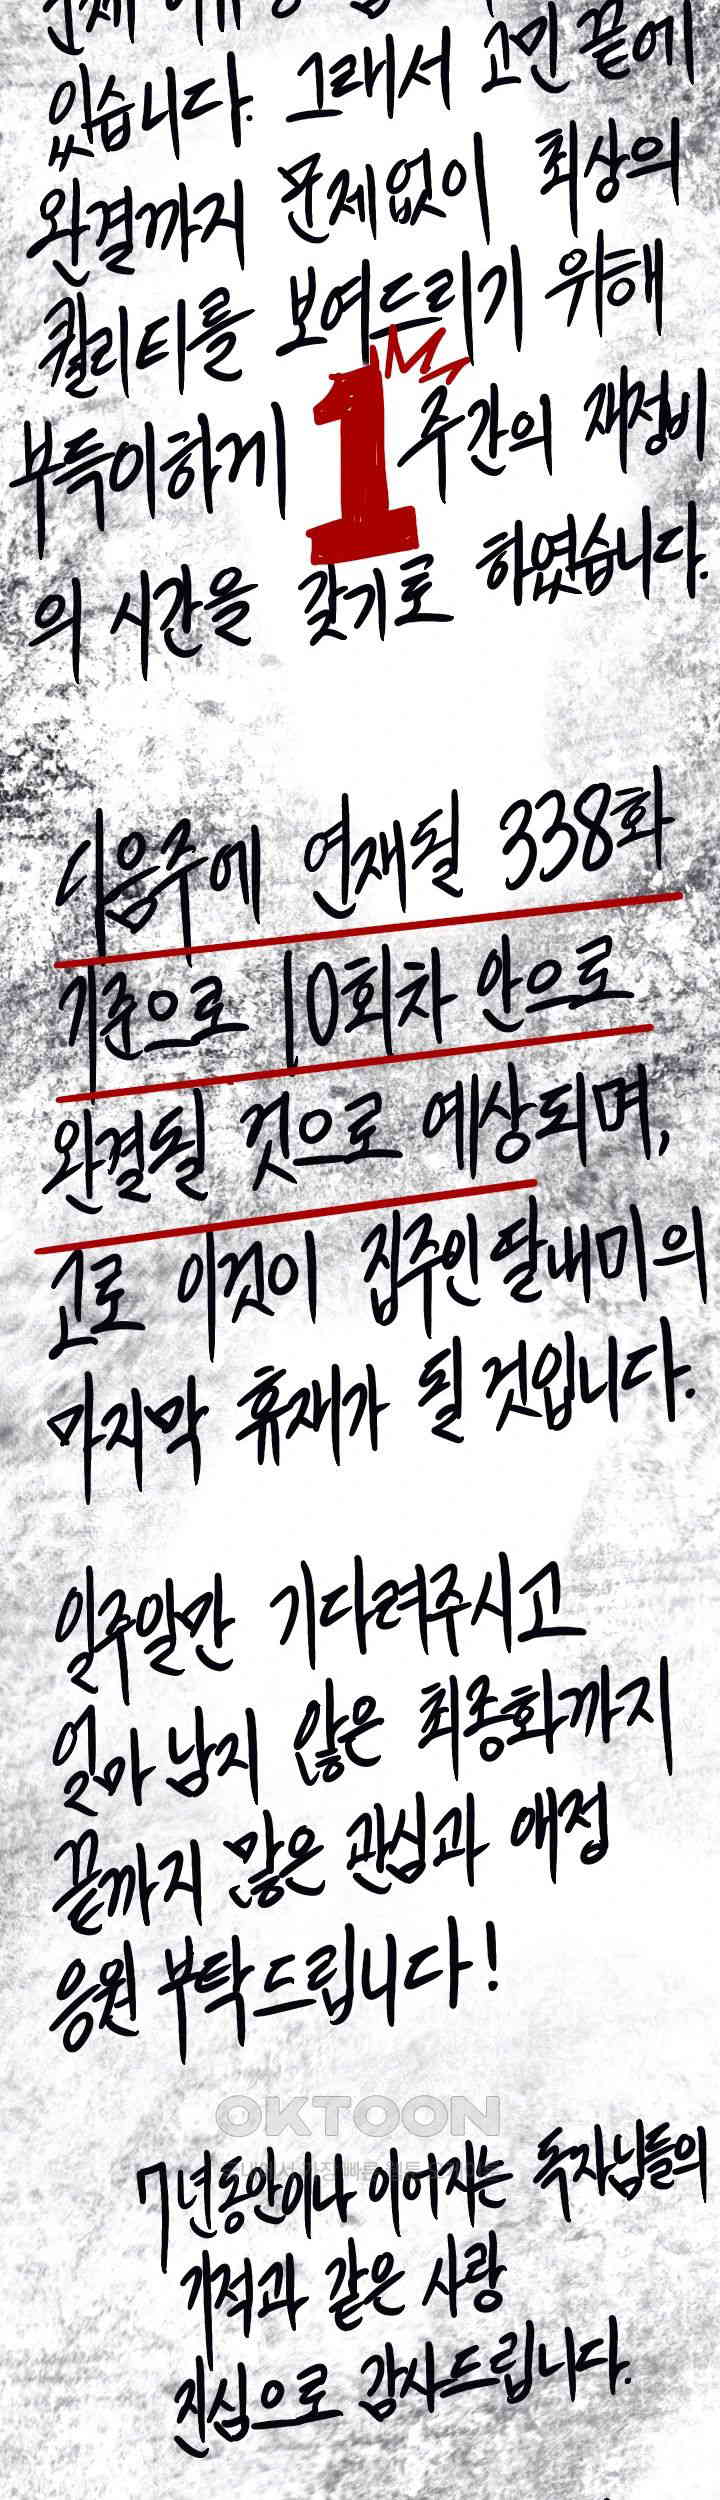 있습니다. 그래서 고민 끝에
완결까지 문제없이 최상의
퀄리티를 보여드리기 위해
부득이하게 1주간의 재정비
의 시간을 갖기로 하였습니다.
다음주에 연재될 338화
기준으로 10회차 안으로
완결될 것으로 예상되며,
고로 이것이 집주인 딸내미의
마지막 휴재가 될 것입니다.
일주일간 기다려주시고
얼마 남지 않은 최종화까지
끝까지 많은 관심과 애정
응원 부탁드립니다!
OKTOON
7년동안이나 이어지는 독자님들의
기적과 같은 사랑
진심으로 감사드립니다.